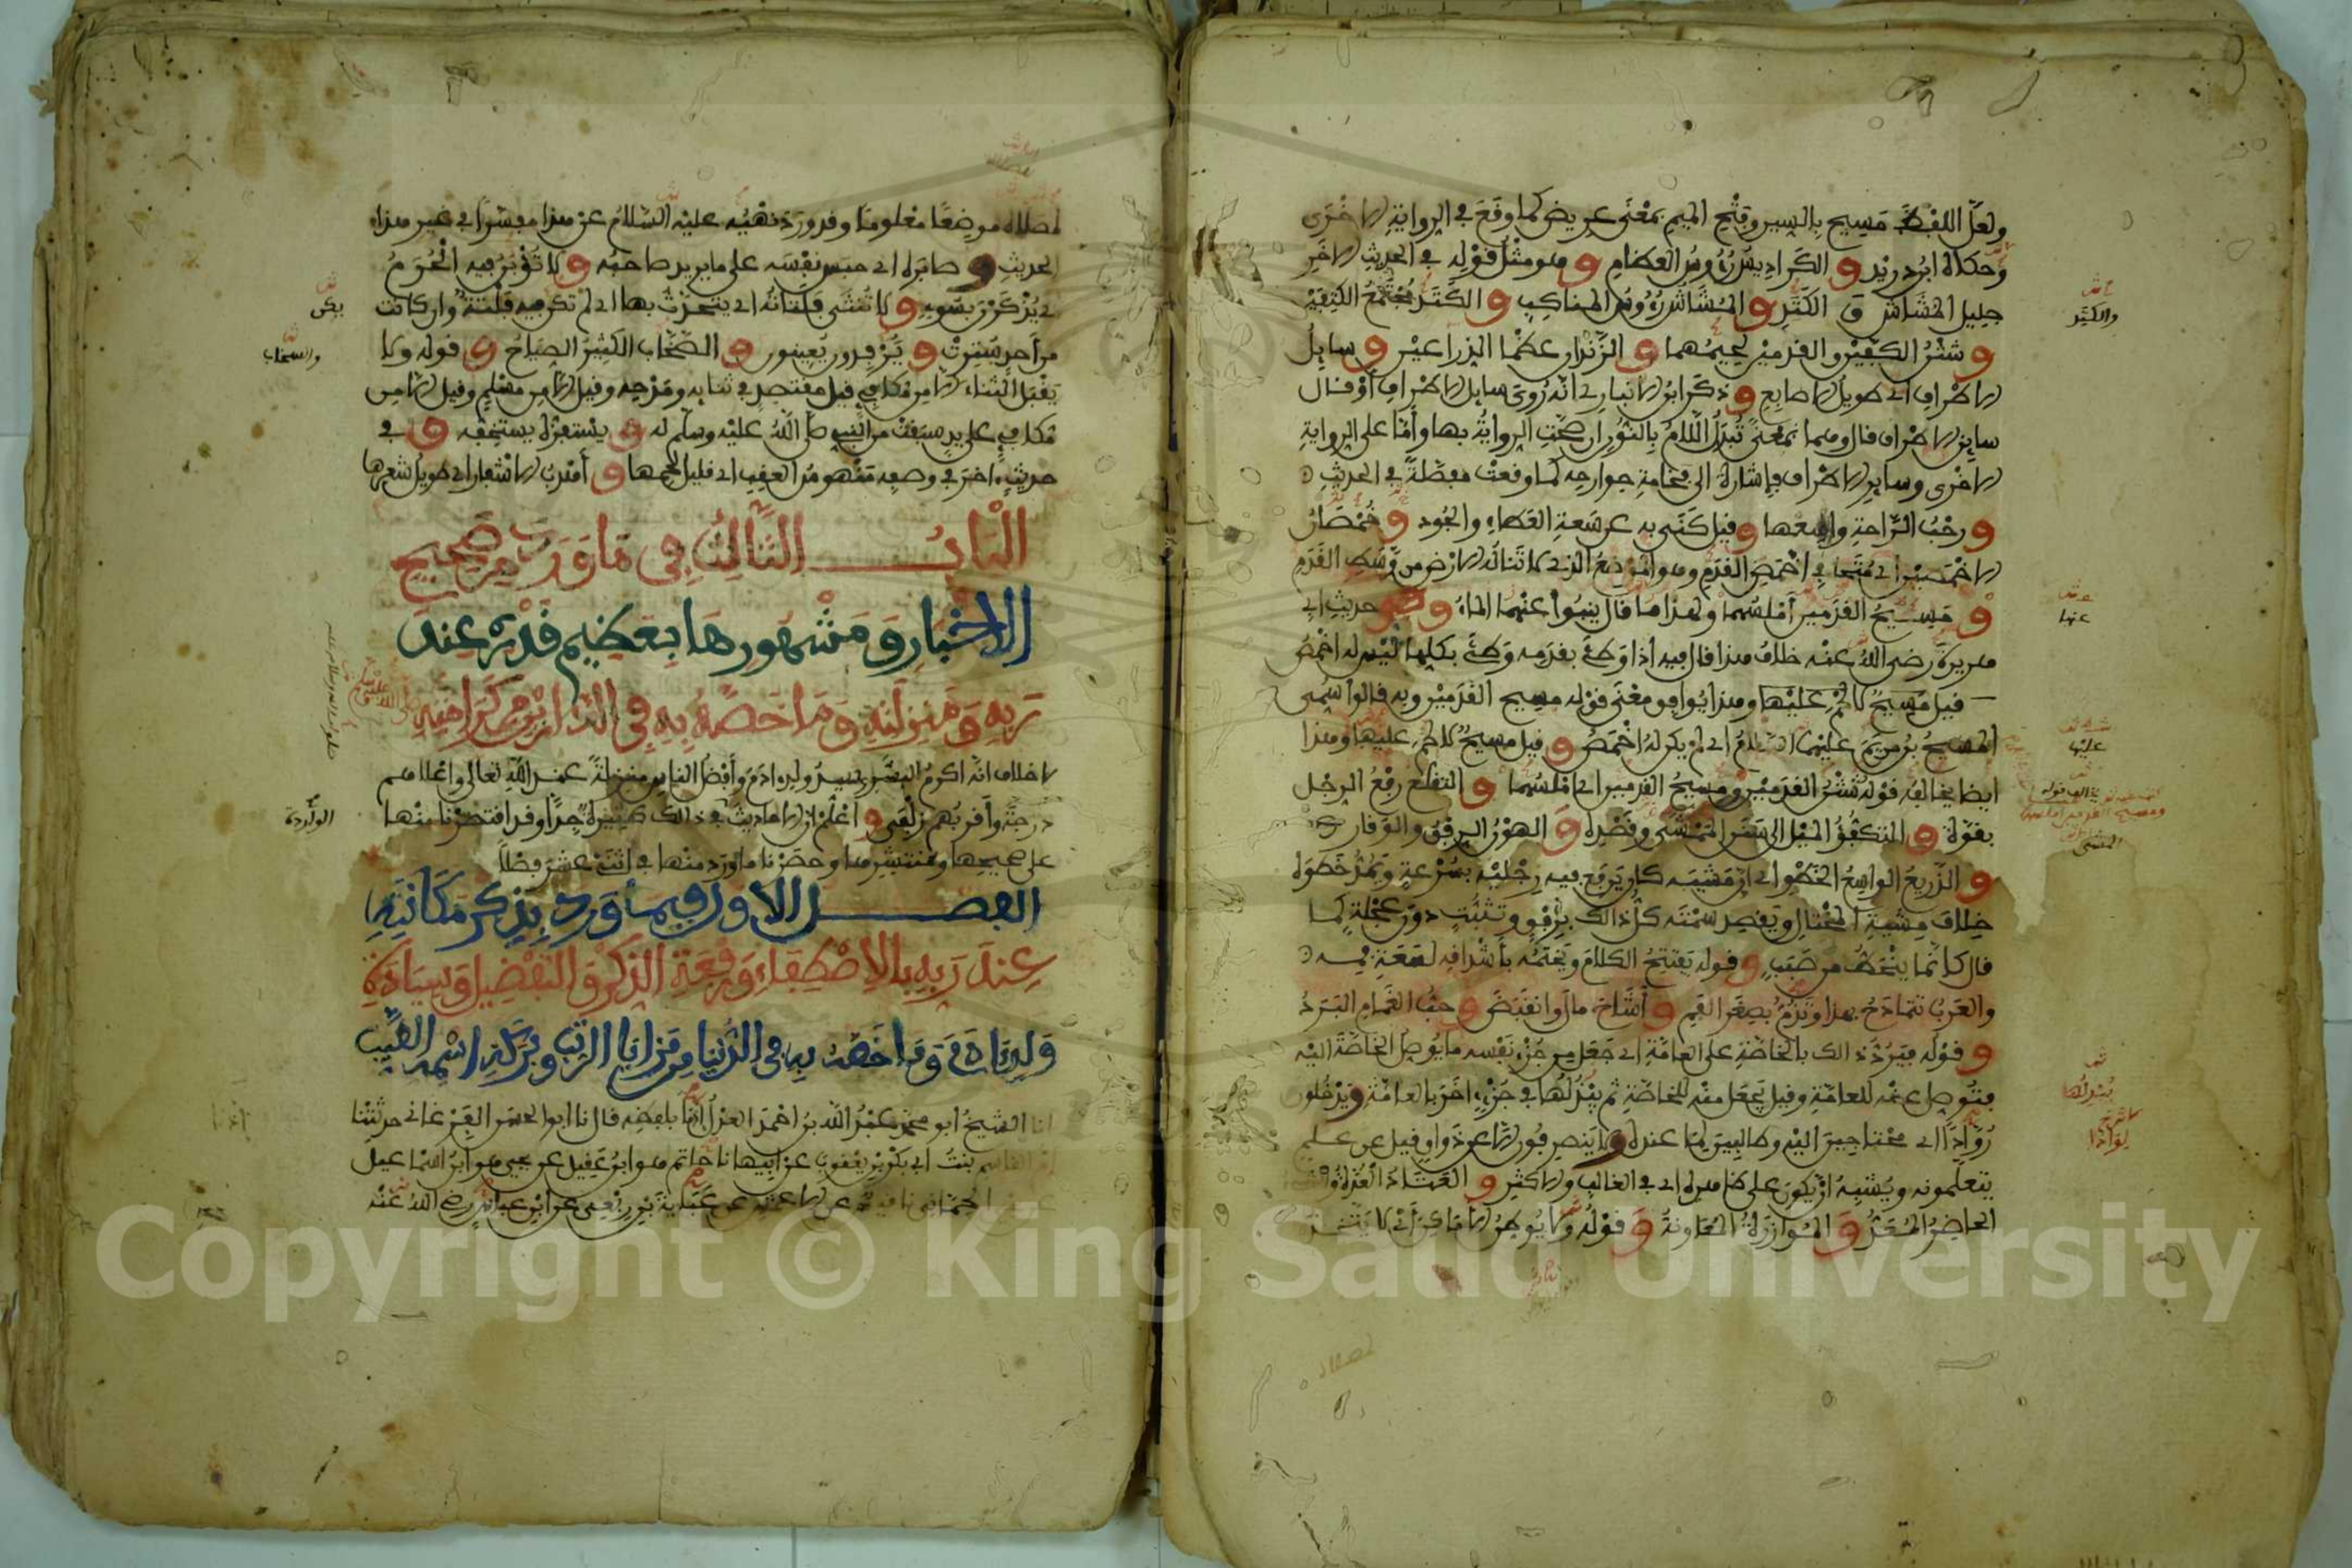 ولعل اللفظ مسيح بالسين وبفتح الميم بمعنى عريض كما وقع في الرواية الاخرى
وحكاه ابن دريد و الكراديس رءوس العظام و هو مثل قوله في الحديث الاخر
جليل المشاش و الكتد و المشاش رءوس المناكب و الكتد مجتمع الكتفين
و شثن الكفين والقدمين لحيمهما و الزندان عظما الذراعين و سايل
الاطراف اي طويل الاصابع و ذكر ابن الانباري انه روي سايل الاطراف او قال
ساين الاطراف قال وهما بمعنى تبدل اللام بالنون ان صحت الرواية بها واما على الرواية
الاخرى وساير الاطراف فاشارة الى فخامة جوارحه كما وقعت مفصلة في الحديث
و رحب الراحة واسعها و قيل كنى به عن سعة العطاء والجود و خمصان
الاخمصين اي متجافي اخمص القدم وهو الموضع الذي لا تناله الارض من وسط القدم
و مسيح القدمين املسهما ولهذا قال ينبوا عنهما الماء و في حديث ابي
هريرة رضي الله عنه خلاف هذا قال فيه اذا وطئ بقدمه وطئ بكلها ليس له اخمص
قيل مسيح لا لحم عليها وهذا يوافق معنى قوله مسيح القدمين وبه قالوا سمي
المسيح بن مريم عليهما السلام اي لم يكن له اخمص و قيل مسيح لا لحم عليها وهذا
ايضا يخالفه قوله شثن القدمين ومسيح القدمين اي املسهما و التقلع رفع الرجل
بقوة و التكفؤ الميل الى سنن الممشى وقصده و الهون الرفق والوقار
و الذريع الواسع الخطو اي ان مشيه كان يرفع فيه رجليه بسرعة ويمد خطوه
خلاف مشية المختال ويقصد سمته كل ذالك برفق وتثبت دون عجلة كما
قال كانما ينحط من صبب و قوله يفتتح الكلام ويختمه باشداقه لسعة فمه
والعرب تتمادح بهذا وتذم بصغر الفم و اشاح مال وانقبض و حب الغمام البرد
و قوله فيرد ذالك بالخاصة على العامة اي جعل من جزء نفسه ما يوصل الخاصة اليه
فتوصل عنه للعامة وقيل يجعل منه للخاصة ثم يبدلها في جزء اخر بالعامة و يدخلون
روادا اي محتاجين اليه وطالبين لما عنده و لا ينصرفون الا عن ذواق قيل عن علم
يتعلمونه ويشبه ان يكون على ظاهره اي في الغالب والاكثر و العتاد العدة والشيء
الحاضر المعد و الموازرة المعاونة و قوله ولا يوطن الاماكن اي لا يتخذ
والكتد
عنها
عليها
لمصلاه موضعا معلوما وقد ورد نهيه عليه السلام عن هذا مفسرا في غير هذا
الحديث و صابره اي حبس نفسه على ما يريد صاحبه و لا تؤبن فيه الحرم
اي يذكرن بسوء و لا تنثى فلتاته اي يتحدث بها اي لم تكن فيه فلتة وان كانت
من احد سترت و يرفدون يعينون و الصخاب الكثير الصياح و قوله ولا
يقبل الثناء الا من مكافئ قيل مقتصد في ثنائه ومدحه وقيل الا من مسلم وقيل الا من
مكافئ على يد سبقت من النبي صلى الله عليه وسلم له و يستفزه يستخفه و في
حديث اخر في وصفه منهوس العقب اي قليل لحمها و اهدب الاشفار اي طويل شعرها
الباب الثالث في ما ورد من صحيح
الاخبار ومشهورها بعظيم قدره عند
ربه ومنزلته وما خصه به في الدارين من كرامته
لا خلاف انه اكرم البشر وسيد ولد ادم وافضل الناس منزلة عند الله تعالى واعلاهم
درجة واقربهم زلفى و اعلم ان الاحاديث في ذالك كثيرة جدا وقد اقتصرنا منها
على صحيحها ومنتشرها وحصرنا ما ورد منها في اثني عشر فصلا
الفصل الاول فيما ورد بذكر مكانته
عند ربه بالاصطفاء ورفعة الذكر والتفضيل وسيادة
ولد ادم وما خصه به في الدنيا من مزايا الرتب وبركة اسمه الطيب
انا الشيخ ابو محمد عبد الله بن احمد العدل اذنا بلفظه قال نا ابو الحسن الفرغاني حدثتنا
ام القاسم بنت ابي بكر بن يعقوب عن ابيها نا حاتم هو ابن عقيل عن يحيى هو ابن اسماعيل
الحماني نا قيس عن الاعمش عن عباية بن ربعي عن ابن عباس رضي الله عنه
يكن
والسخاب
الواردة
Copyright © King Saud University